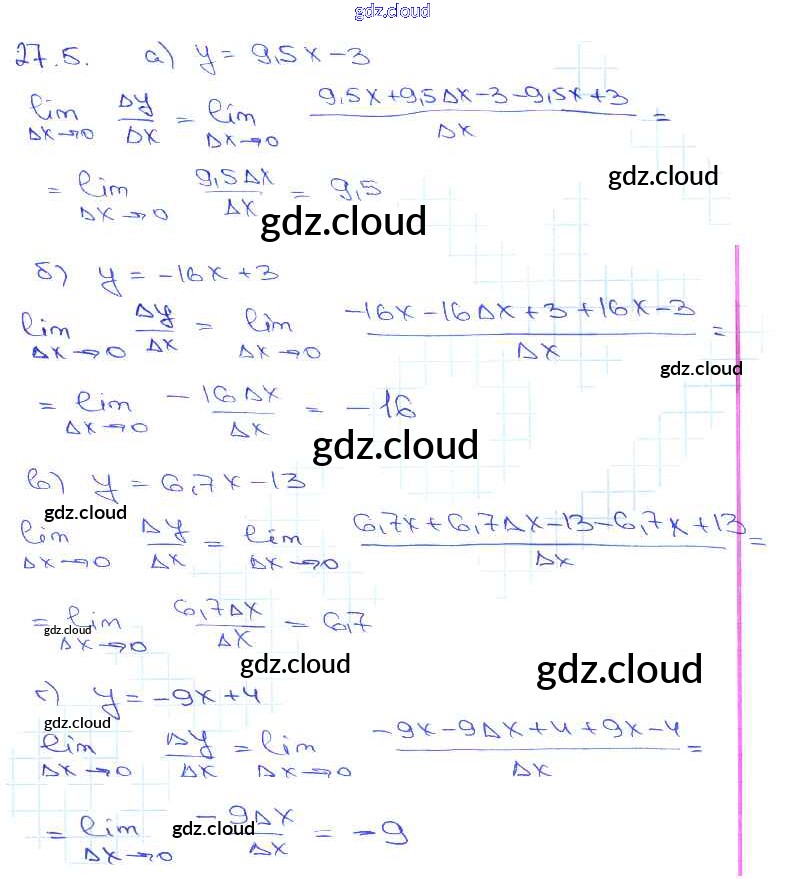 gdz.cloud
27.5. а) y = 9,5x - 3
lim Δx→0 Δy/Δx = lim Δx→0 (9,5x + 9,5Δx - 3 - 9,5x + 3)/Δx =
gdz.cloud
= lim Δx→0 9,5Δx/Δx = 9,5
gdz.cloud
б) y = -16x + 3
lim Δx→0 Δy/Δx = lim Δx→0 (-16x - 16Δx + 3 + 16x - 3)/Δx =
gdz.cloud
= lim Δx→0 -16Δx/Δx = -16
gdz.cloud
в) y = 6,7x - 13
gdz.cloud
lim Δx→0 Δy/Δx = lim Δx→0 (6,7x + 6,7Δx - 13 - 6,7x + 13)/Δx =
= lim Δx→0 6,7Δx/Δx = 6,7
gdz.cloud
gdz.cloud
gdz.cloud
г) y = -9x + 4
gdz.cloud
lim Δx→0 Δy/Δx = lim Δx→0 (-9x - 9Δx + 4 + 9x - 4)/Δx =
= lim Δx→0 -9Δx/Δx = -9
gdz.cloud